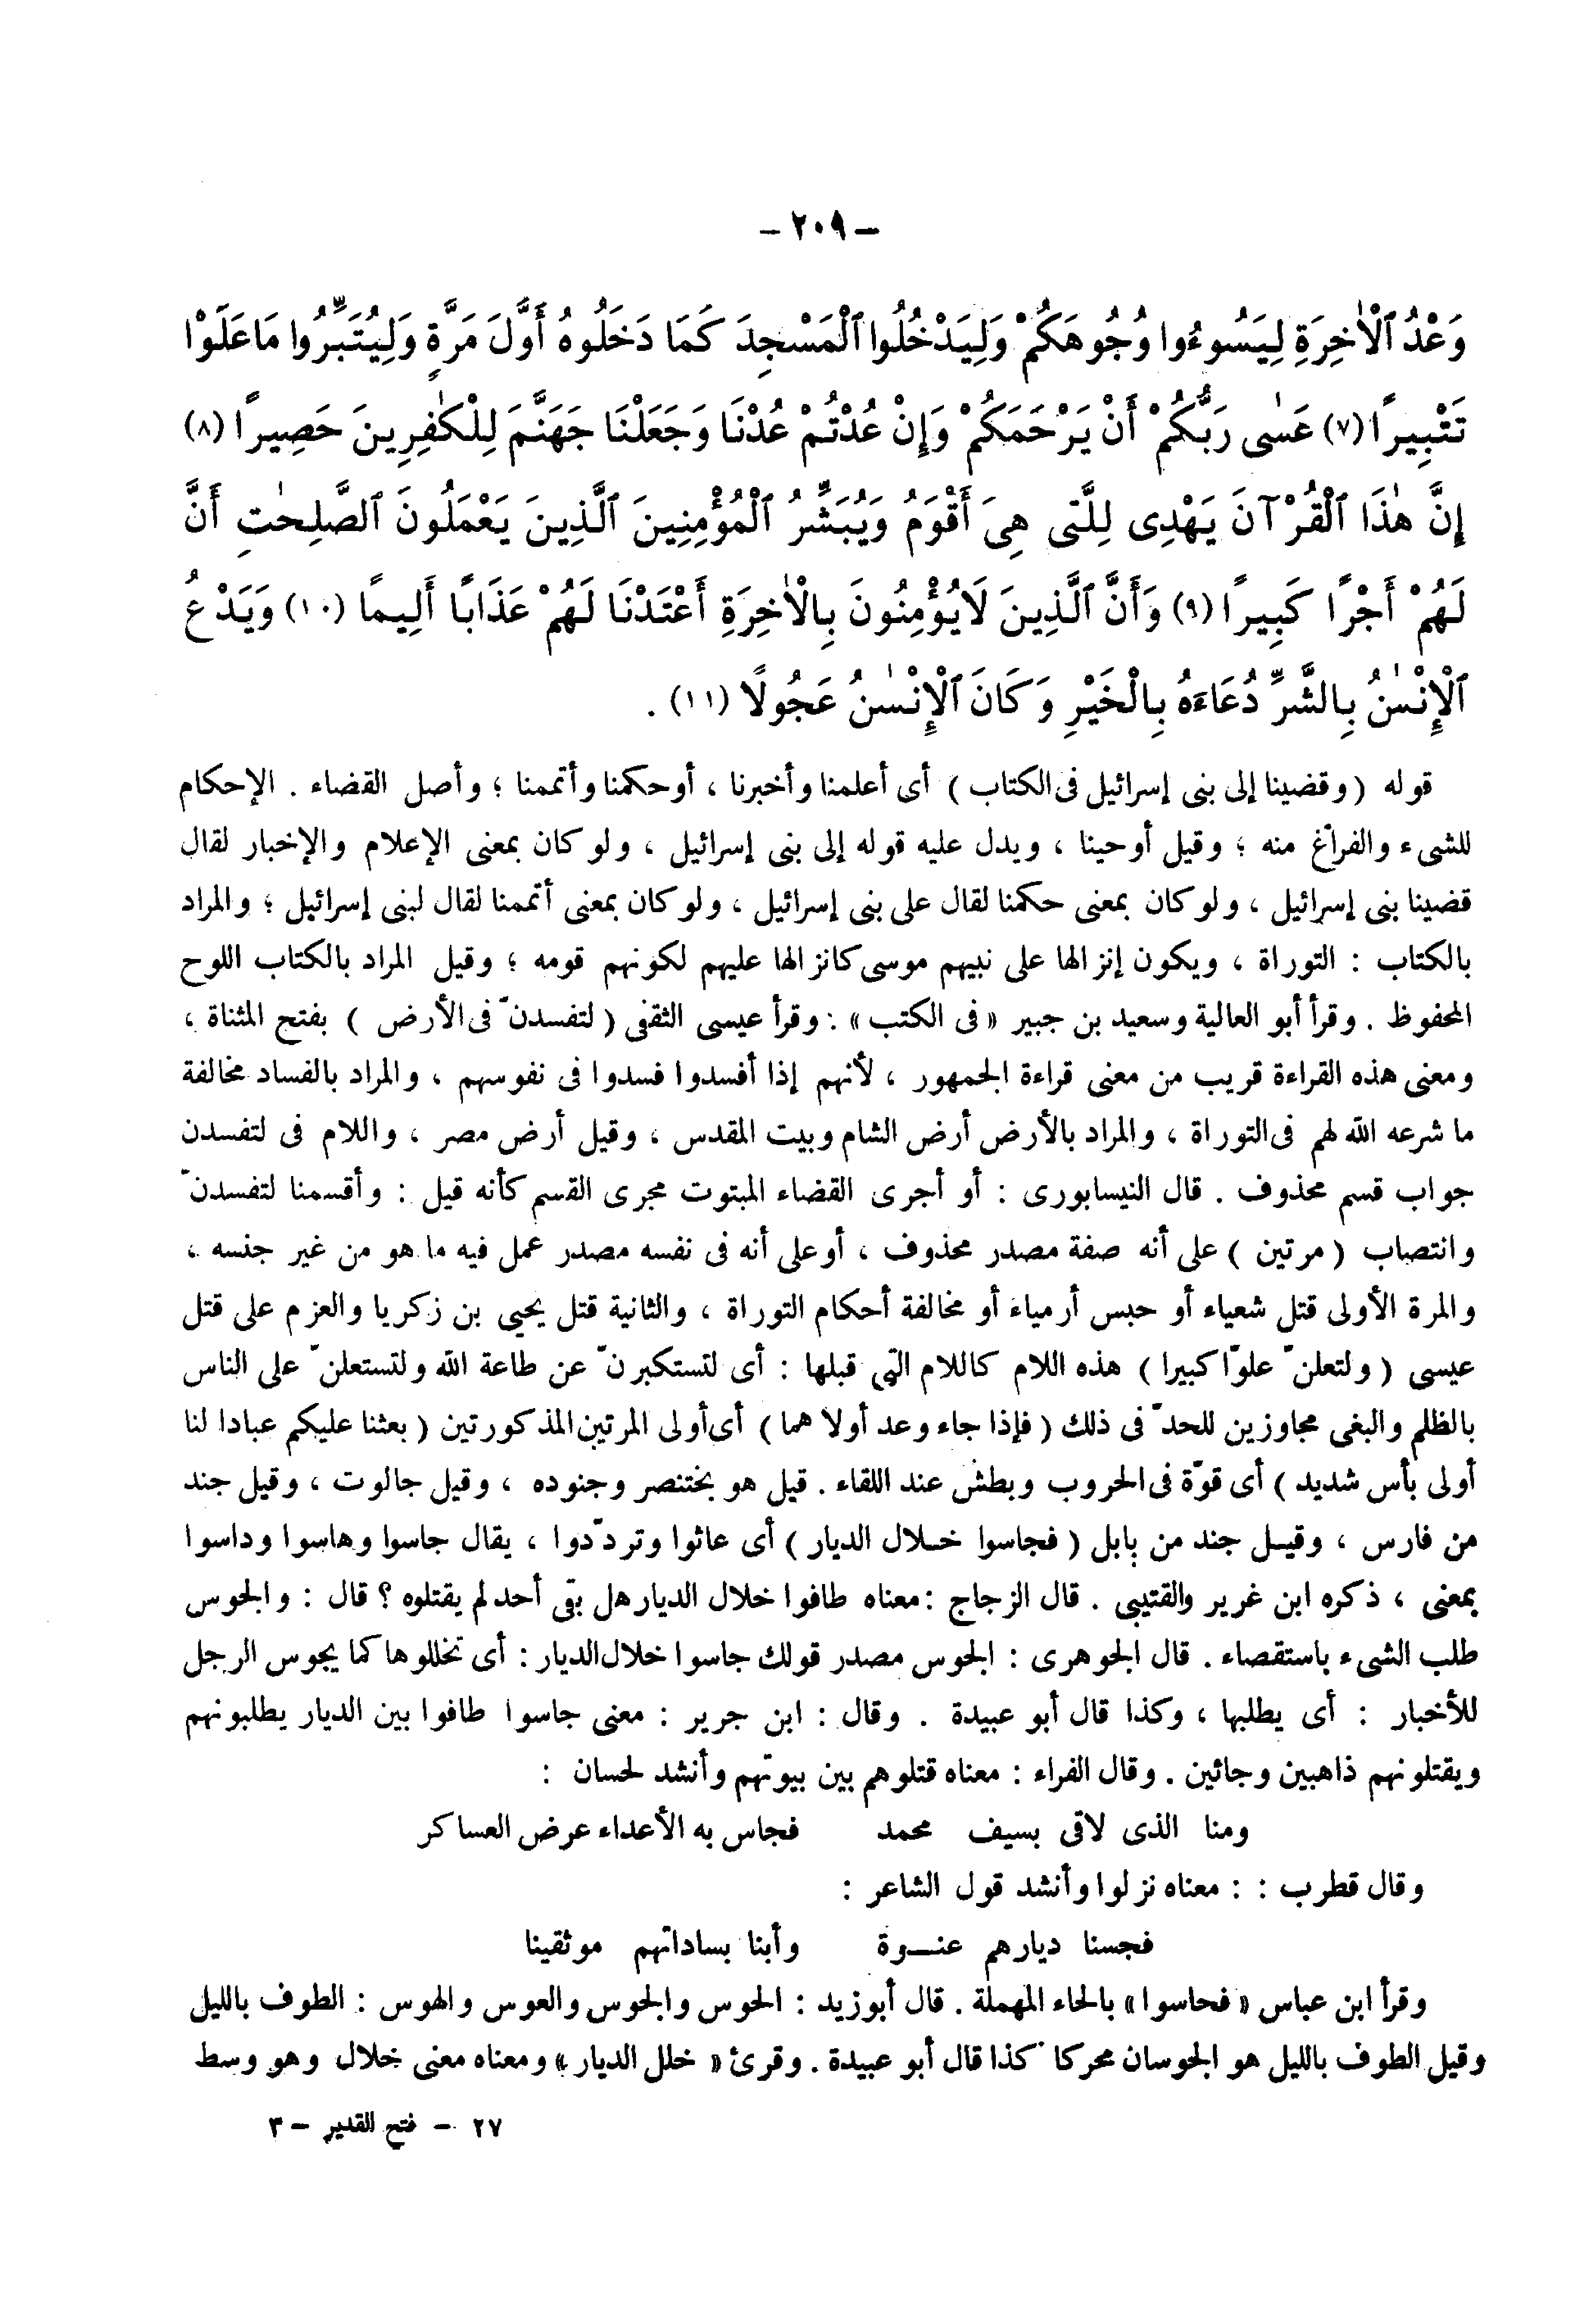 – ٢٠٩ –
وَعْدُ ٱلْأٰخِرَةِ لِيَسُوءُوا وُجُوهَكُمْ وَلِيَدْخُلُوا ٱلْمَسْجِدَ كَمَا دَخَلُوهُ أَوَّلَ مَرَّةٍ وَلِيُتَبِّرُوا مَاعَلَوْا
تَتْبِيرًا (٧) عَسٰى رَبُّكُمْ أَنْ يَرْحَمَكُمْ وَإِنْ عُدْتُمْ عُدْنَا وَجَعَلْنَا جَهَنَّمَ لِلْكٰفِرِينَ حَصِيرًا (٨)
إِنَّ هٰذَا ٱلْقُرْآنَ يَهْدِى لِلَّتى هِىَ أَقْوَمُ وَيُبَشِّرُ ٱلْمُؤْمِنِينَ ٱلَّذِينَ يَعْمَلُونَ ٱلصَّلِحٰتِ أَنَّ
لَهُمْ أَجْرًا كَبِيرًا (٩) وَأَنَّ ٱلَّذِينَ لَايُؤْمِنُونَ بِالْأٰخِرَةِ أَعْتَدْنَا لَهُمْ عَذَابًا أَلِيمًا (١٠) وَيَدْعُ
ٱلْإِنْسٰنُ بِالشَّرِّ دُعَاءَهُ بِالْخَيْرِ وَكَانَ ٱلْإِنْسٰنُ عَجُولًا (١١) .
قوله (وقضينا إلى بنى إسرائيل فى الكتاب) أى أعلمنا وأخبرنا ، أوحكمنا وأتممنا ؛ وأصل القضاء . الإحكام
للشىء والفراغ منه ؛ وقيل أوحينا ، ويدل عليه قوله إلى بنى إسرائيل ، ولو كان بمعنى الإعلام والإخبار لقال
قضينا بنى إسرائيل ، ولو كان بمعنى حكمنا لقال على بنى إسرائيل ، ولو كان بمعنى أتممنا لقال لبنى إسرائيل ؛ والمراد
بالكتاب : التوراة ، ويكون إنزالها على نبيهم موسى كانزالها عليهم لكونهم قومه ؛ وقيل المراد بالكتاب اللوح
المحفوظ . وقرأ أبو العالية وسعيد بن جبير « فى الكتب» : وقرأ عيسى الثقفى (لتفسدنّ فى الأرض) بفتح المثناة ،
ومعنى هذه القراءة قريب من معنى قراءة الجمهور ، لأنهم إذا أفسدوا فسدوا فى نفوسهم ، والمراد بالفساد مخالفة
ما شرعه الله لهم فى التوراة ، والمراد بالأرض أرض الشام وبيت المقدس ، وقيل أرض مصر ، واللام فى لتفسدن
جواب قسم محذوف . قال النيسابورى : أو أجرى القضاء المبتوت مجرى القسم كأنه قيل : وأقسمنا لتفسدنّ
وانتصاب (مرتين) على أنه صفة مصدر محذوف ، أوعلى أنه فى نفسه مصدر عمل فيه ما هو من غير جنسه ،
والمرة الأولى قتل شعياء أو حبس أرمياء أو مخالفة أحكام التوراة ، والثانية قتل يحيى بن زكريا والعزم على قتل
عيسى (ولتعلنّ علوّا كبيرا) هذه اللام كاللام التى قبلها : أى لتستكبرنّ عن طاعة الله ولتستعلنّ على الناس
بالظلم والبغى مجاوزين للحدّ فى ذلك (فإذا جاء وعد أولاهما) أى أولى المرتين المذكورتين (بعثنا عليكم عبادا لنا
أولى بأس شديد) أى قوّة فى الحروب وبطش عند اللقاء . قيل هو بختنصر وجنوده ، وقيل جالوت ، وقيل جند
من فارس ، وقيل جند من بابل (فجاسوا خلال الديار) أى عاثوا وتردّدوا ، يقال جاسوا وهاسوا وداسوا
بمعنى ، ذكره ابن غرير والقتيبى . قال الزجاج : معناه طافوا خلال الديار هل بقى أحد لم يقتلوه ؟ قال : والجوس
طلب الشىء باستقصاء . قال الجوهرى : الجوس مصدر قولك جاسوا خلال الديار : أى تخللوها كما يجوس الرجل
للأخبار : أى يطلبها ، وكذا قال أبو عبيدة . وقال : ابن جرير : معنى جاسوا طافوا بين الديار يطلبونهم
ويقتلونهم ذاهبين وجائين . وقال الفراء : معناه قتلوهم بين بيوتهم وأنشد لحسان :
ومنا الذى لاقى بسيف محمد فجاس به الأعداء عرض العساكر
وقال قطرب : : معناه نزلوا وأنشد قول الشاعر :
فجسنا ديارهم عنوة وأبنا بساداتهم موثقينا
وقرأ ابن عباس « فحاسوا» بالحاء المهملة . قال أبوزيد : الحوس والجوس والعوس والهوس : الطوف بالليل
وقيل الطوف بالليل هو الجوسان محركا كذا قال أبو عبيدة . وقرئ « خلل الديار » ومعناه معنى خلال وهو وسط
٢٧ – فتح القدير – ٣